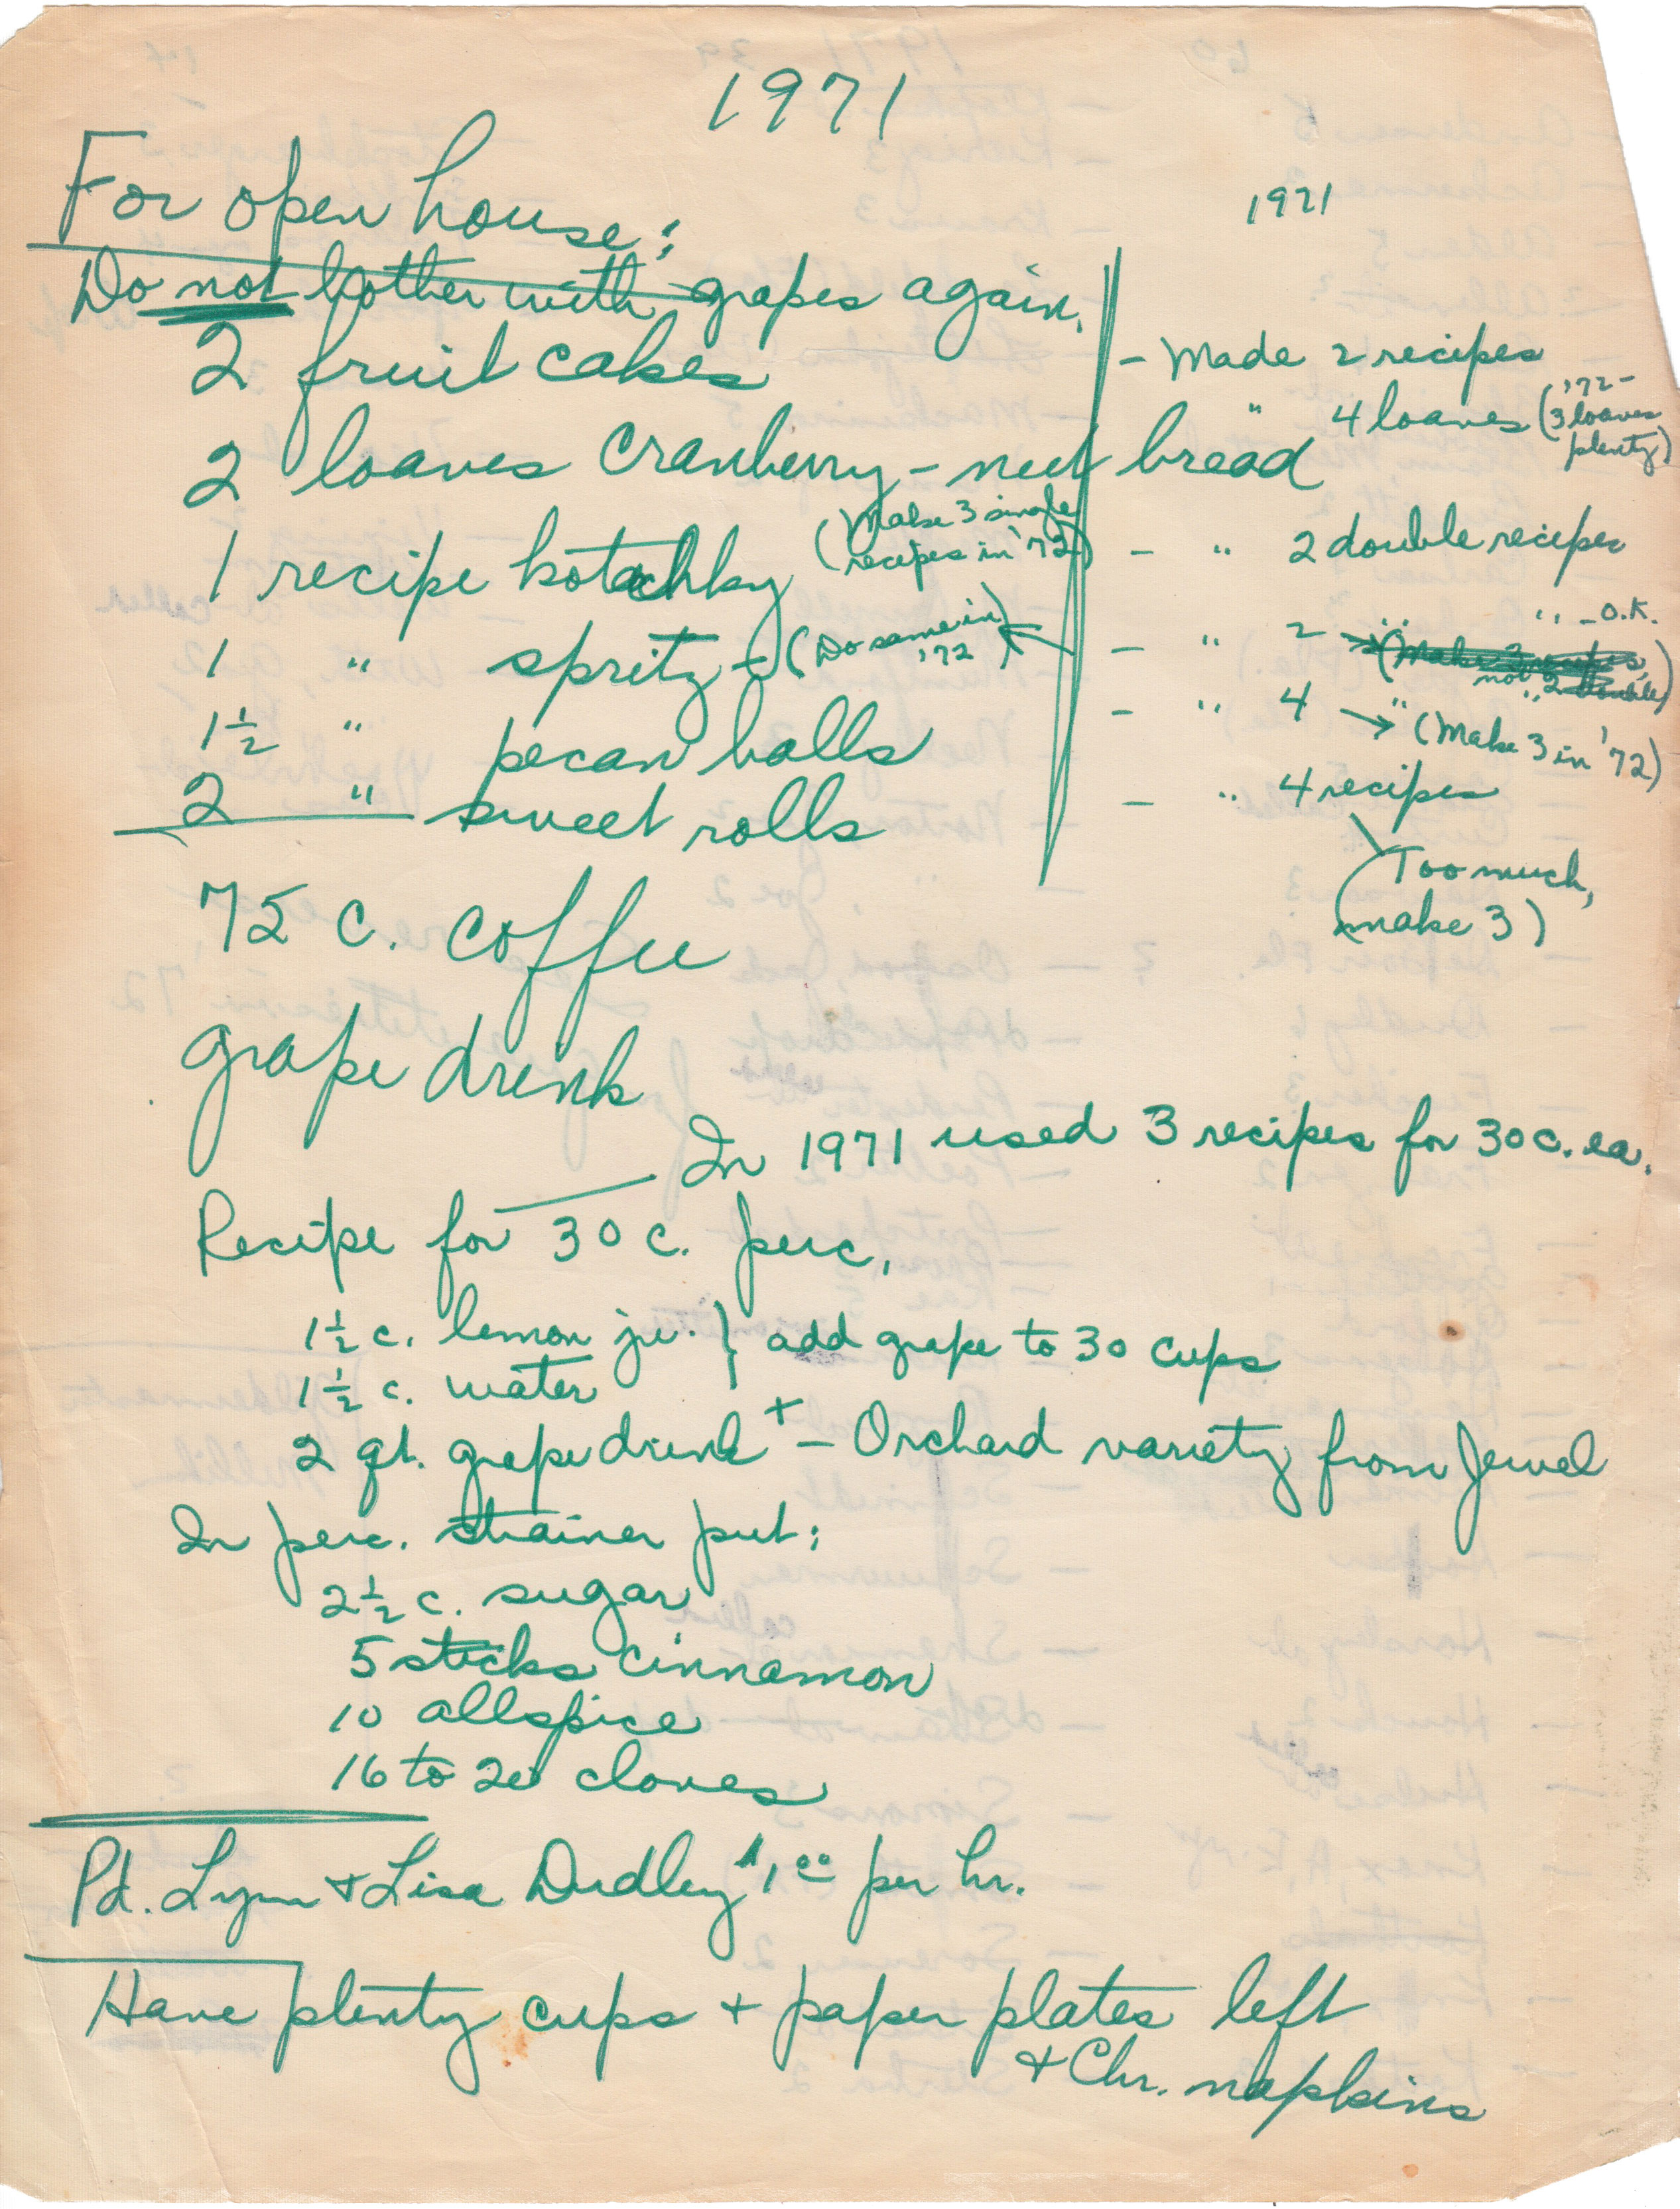 1971
For open house:
1971
Do not bother with grapes again.
2 fruit cakes - Made 2 recipes
" 4 loaves ('72 - 3 loaves plenty)
2 loaves cranberry-nut bread
1 recipe kotachky (Make 3 single recipes in '72) - " 2 double recipes
1 " spritz - (Do same in '72) - " 2 " " - O.K.
(Make 3 recipes, not 2 double)
1½ " pecan balls - " 4 " → (Make 3 in '72)
2 " sweet rolls - " 4 recipes
(Too much, make 3)
75 c. coffee
grape drink
In 1971 used 3 recipes for 30 c. ea.
Recipe for 30 c. perc.
1½ c. lemon ju. } add grape to 30 cups
1½ c. water
2 qt. grape drink + - Orchard variety from Jewel
In perc. strainer put:
2½ c. sugar
5 sticks cinnamon
10 allspice
16 to 20 cloves
Pd. Lynn + Lisa Dudley $1.00 per hr.
Have plenty cups + paper plates left
+ Chr. napkins